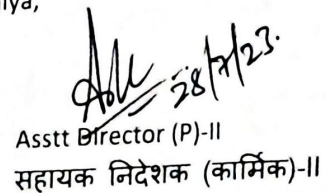 28/7/23.
Asstt Director (P)-II
सहायक निदेशक (कार्मिक)-II